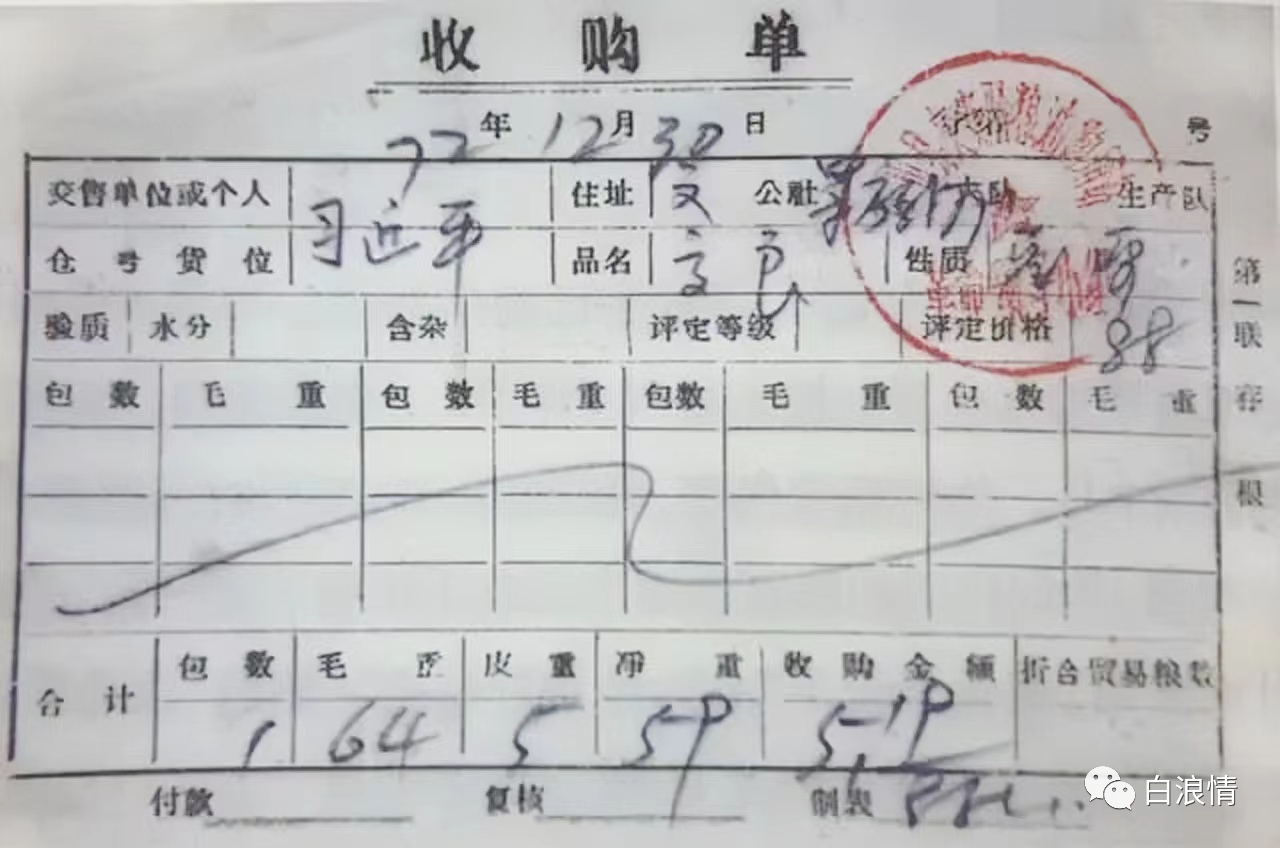 收购单
72年12月30日 号
交售单位或个人 习近平 住址 文 公社 大队 生产队
仓号货位 品名 性质
验质 水分 含杂 评定等级 评定价格 88
包数 毛重 包数 毛重 包数 毛重 包数 毛重
合计 包数 毛重 皮重 净重 收购金额 折合贸易粮数
1 64 5 59 5.19
付款 复核 制表
第一联 存根
白浪情